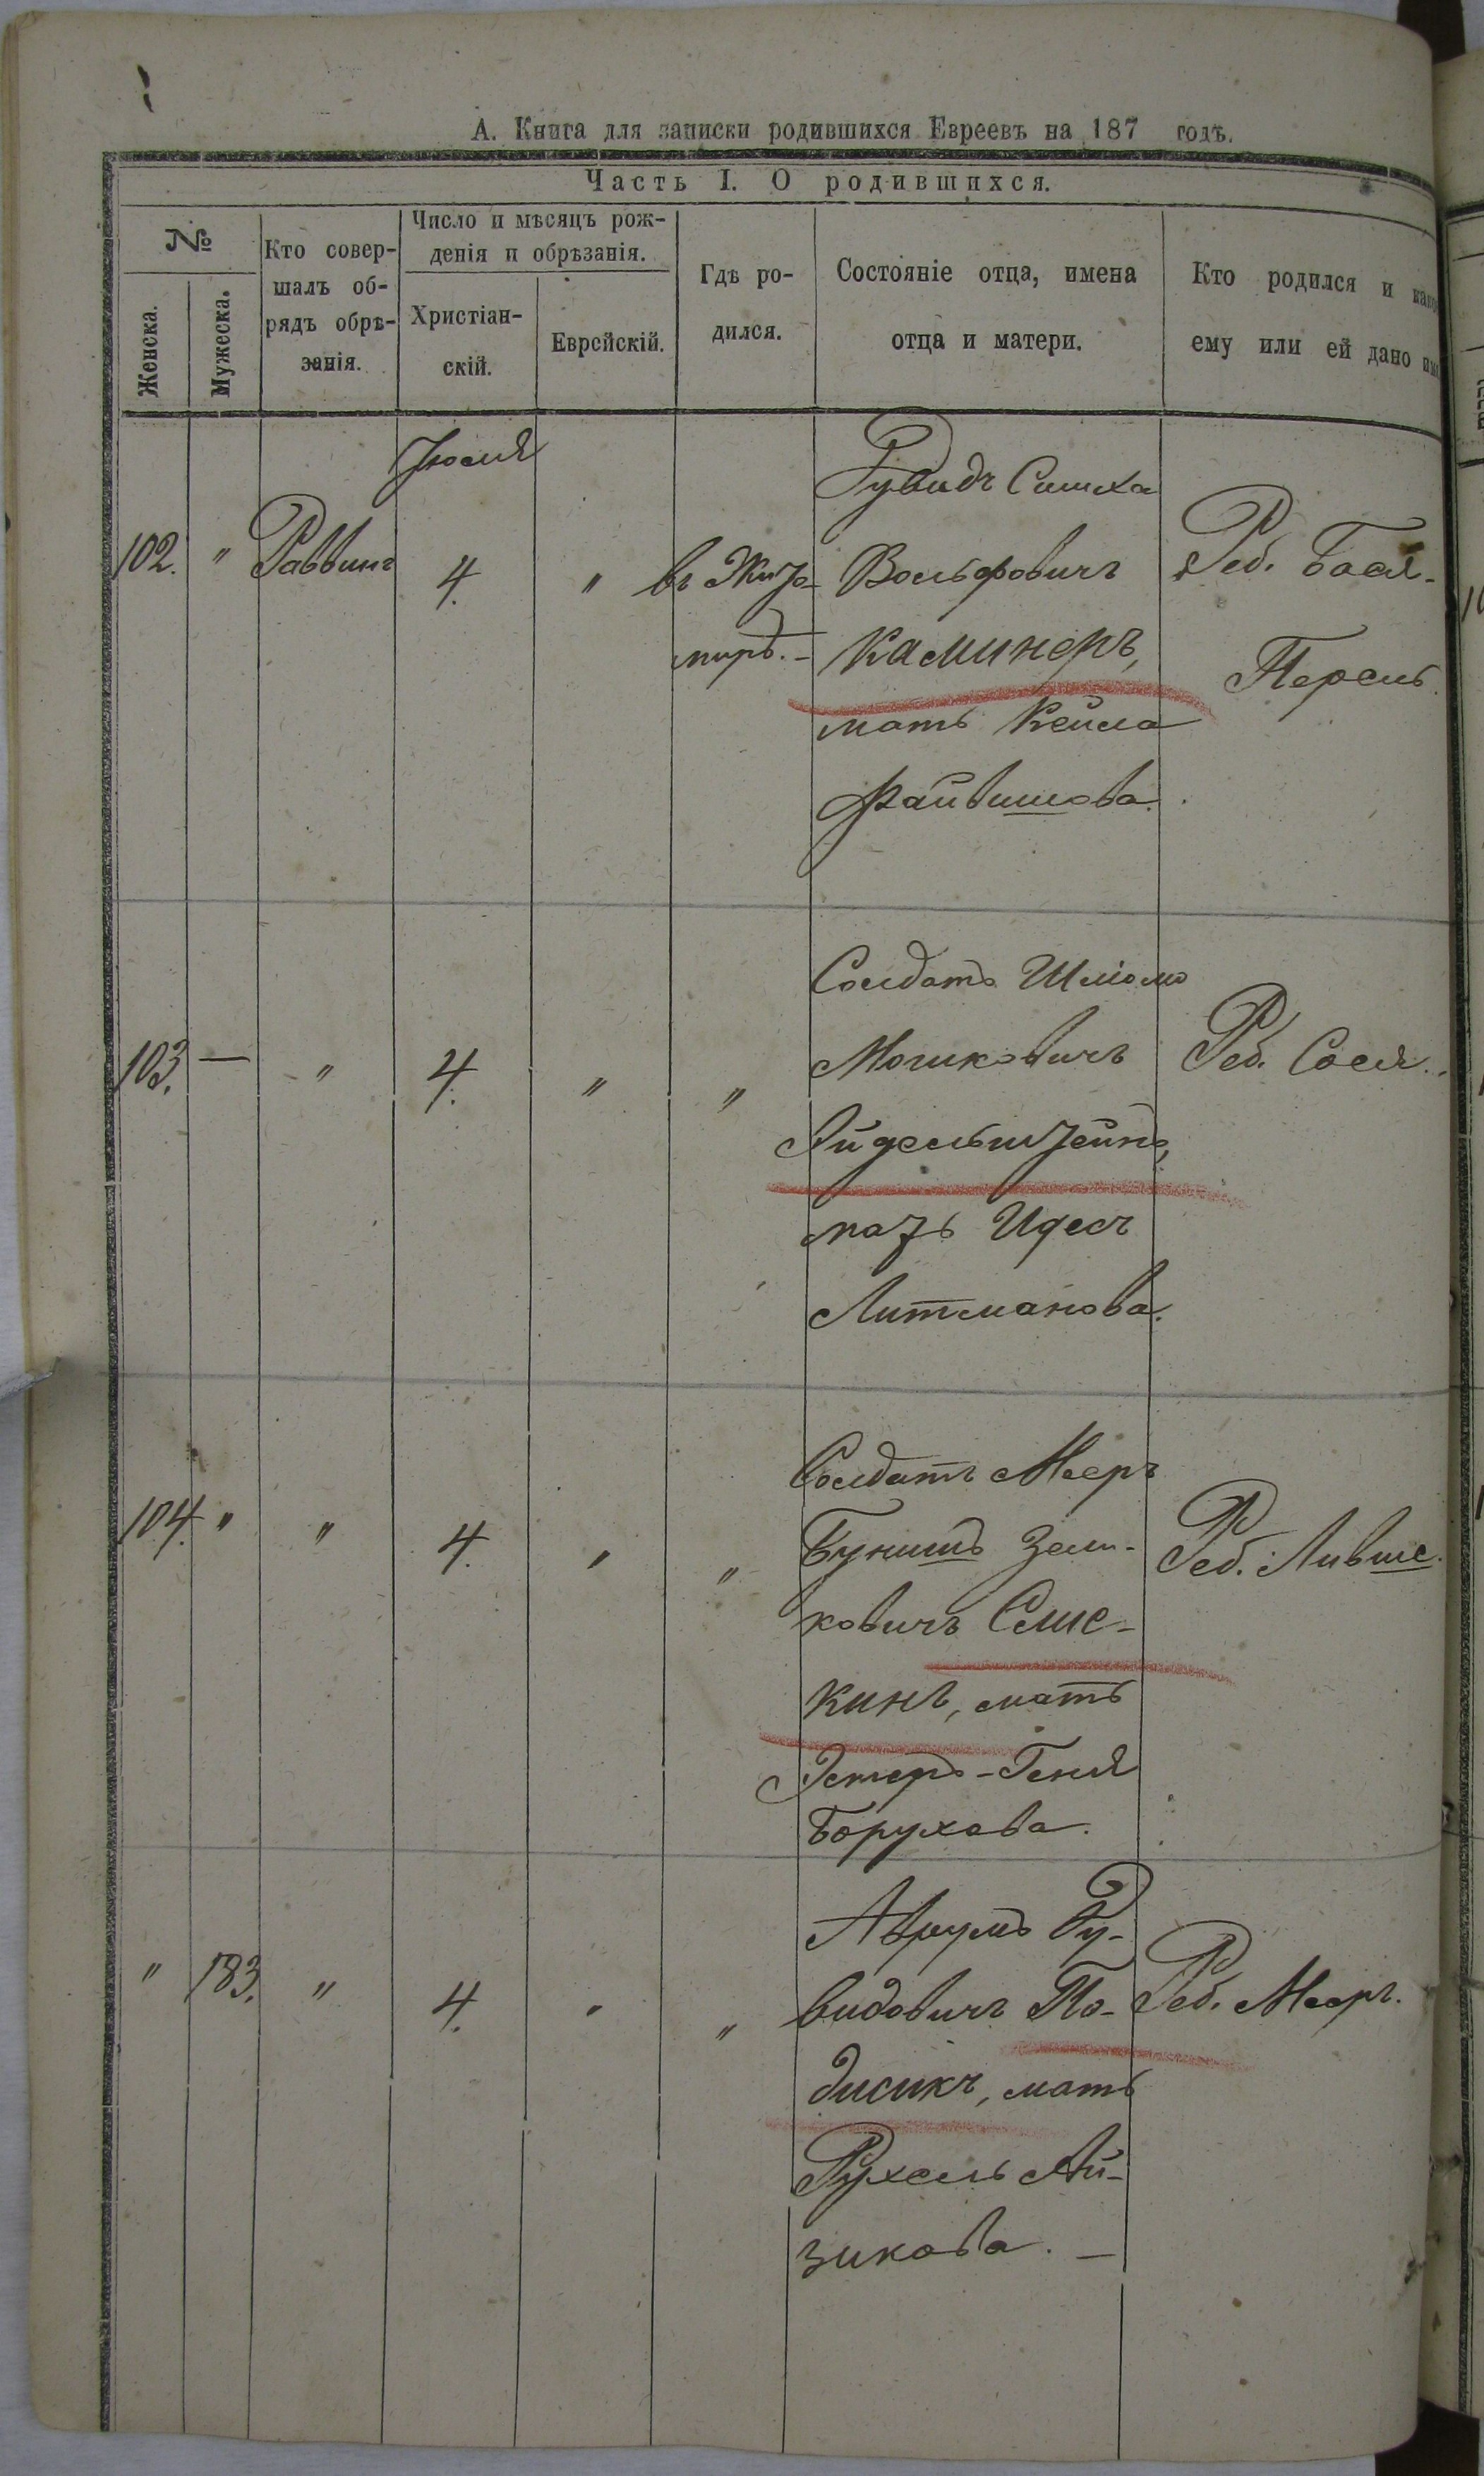 А. Книга для записки родившихся Евреевъ на 187 годъ.
Часть I. О родившихся.
№
Женска.
Мужеска.
Кто совер-
шалъ об-
рядъ обрѣ-
занія.
Число и мѣсяцъ рож-
денія и обрѣзанія.
Христіан-
скій.
Еврейскій.
Гдѣ ро-
дился.
Состояніе отца, имена
отца и матери.
Кто родился и
ему или ей дано
Іюля
102. " Раввинъ 4. " въ Жито-
миръ. –
Рувидъ Симха
Вольфовичъ
Каминеръ,
мать Кейла
Файвишова.
Реб. Бася-
Перель.
103. — " 4. " "
Солдатъ Шліомо
Мошковичъ
Айдельштейнъ,
мать Идесъ
Литманова.
Реб. Сося.
104. " " 4. " "
Солдатъ Мееръ
Бунимъ Зель-
ковичъ Слис-
кинъ, мать
Эстеръ-Геня
Борухова.
Реб. Ливше.
" 183. " 4. " "
Аврумъ Ру-
видовичъ По-
дисикъ, мать
Рухель Ай-
зикова. –
Реб. Мееръ.